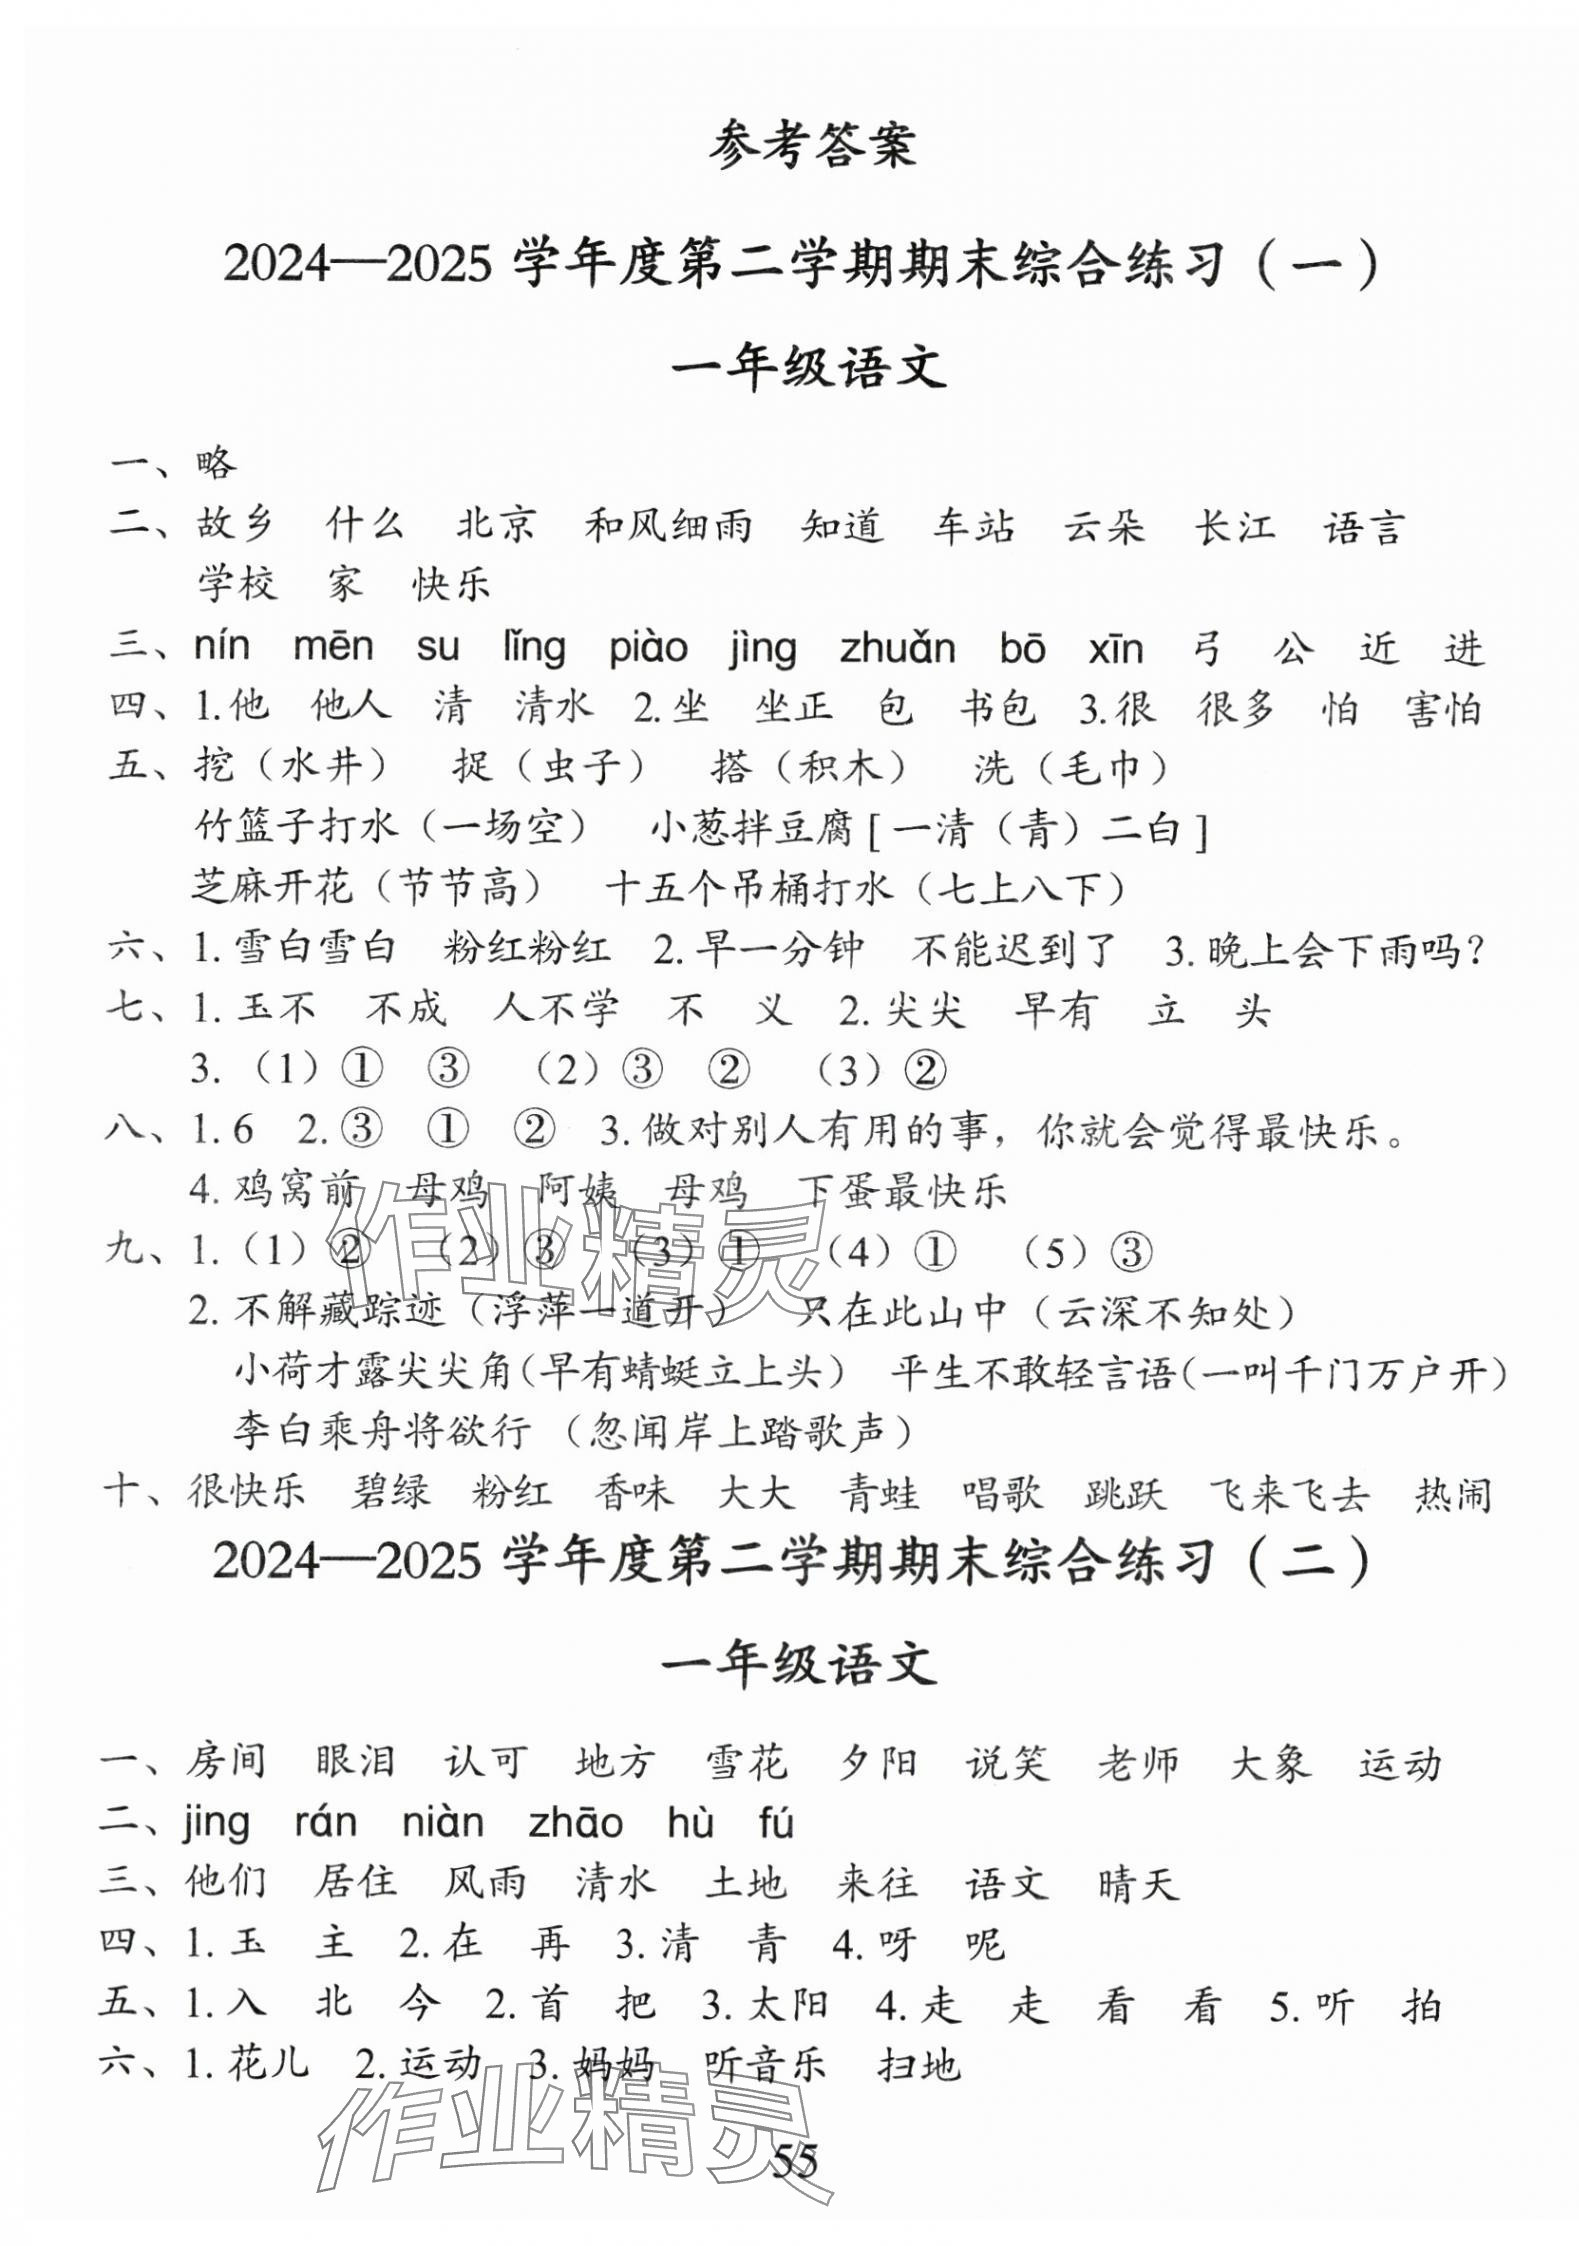 参考答案
2024—2025 学年度第二学期期末综合练习（一）
一年级语文
一、略
二、故乡 什么 北京 和风细雨 知道 车站 云朵 长江 语言
学校 家 快乐
三、nín mēn su lǐng piào jìng zhuǎn bō xīn 弓 公 近 进
四、1.他 他人 清 清水 2.坐 坐正 包 书包 3.很 很多 怕 害怕
五、挖（水井） 捉（虫子） 搭（积木） 洗（毛巾）
竹篮子打水（一场空） 小葱拌豆腐[一清（青）二白]
芝麻开花（节节高） 十五个吊桶打水（七上八下）
六、1.雪白雪白 粉红粉红 2.早一分钟 不能迟到了 3.晚上会下雨吗？
七、1.玉不 不成 人不学 不 义 2.尖尖 早有 立 头
3.（1）① ③ （2）③ ② （3）②
八、1.6 2.③ ① ② 3.做对别人有用的事，你就会觉得最快乐。
4.鸡窝前 母鸡 阿姨 母鸡 下蛋最快乐
九、1.（1）② （2）③ （3）① （4）① （5）③
2.不解藏踪迹（浮萍一道开） 只在此山中（云深不知处）
小荷才露尖尖角（早有蜻蜓立上头） 平生不敢轻言语（一叫千门万户开）
李白乘舟将欲行 （忽闻岸上踏歌声）
十、很快乐 碧绿 粉红 香味 大大 青蛙 唱歌 跳跃 飞来飞去 热闹
作业精灵
2024—2025 学年度第二学期期末综合练习（二）
一年级语文
一、房间 眼泪 认可 地方 雪花 夕阳 说笑 老师 大象 运动
二、jing rán niàn zhāo hù fú
三、他们 居住 风雨 清水 土地 来往 语文 晴天
四、1.玉 主 2.在 再 3.清 青 4.呀 呢
五、1.入 北 今 2.首 把 3.太阳 4.走 走 看 看 5.听 拍
六、1.花儿 2.运动 3.妈妈 听音乐 扫地
作业精灵
55